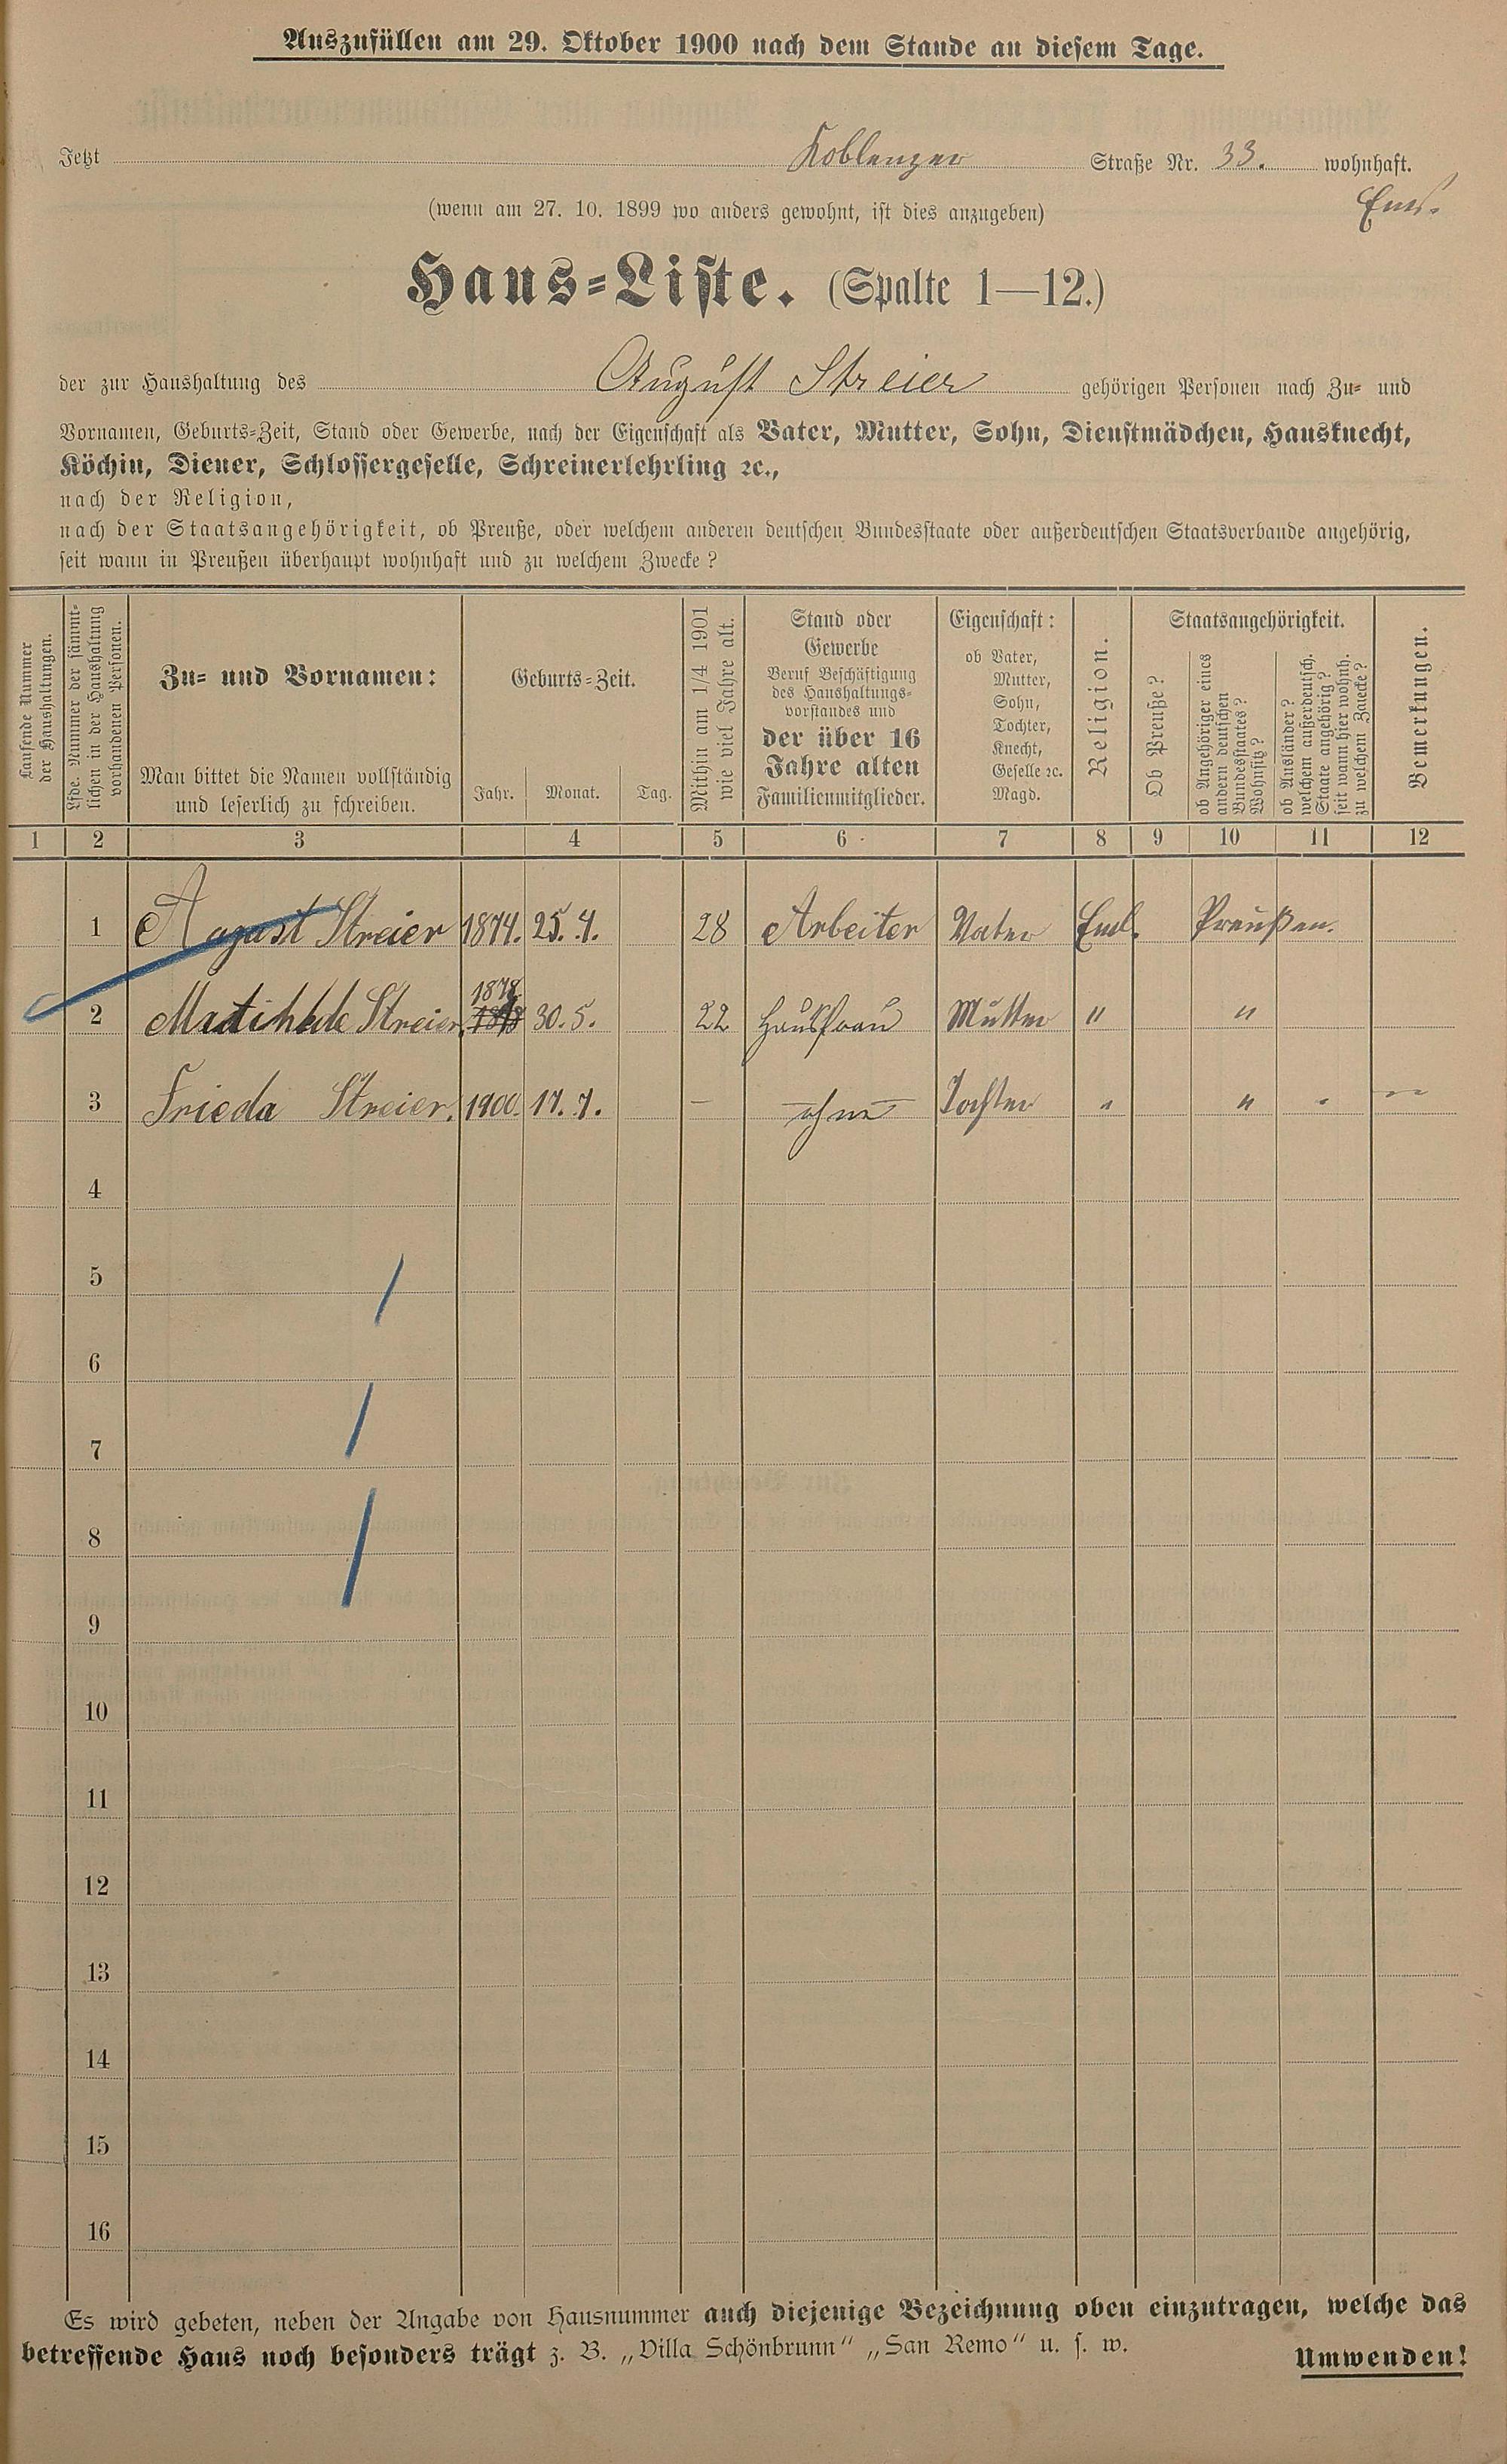 Auszufüllen am 29. Oktober 1900 nach dem Stande an diesem Tage.
Jetzt Koblenzer Straße Nr. 33. wohnhaft.
Ems.
(wenn am 27. 10. 1899 wo anders gewohnt, ist dies anzugeben)
Haus-Liste. (Spalte 1—12.)
der zur Haushaltung des August Streier gehörigen Personen nach Zu- und
Vornamen, Geburts-Zeit, Stand oder Gewerbe, nach der Eigenschaft als Vater, Mutter, Sohn, Dienstmädchen, Hausknecht,
Köchin, Diener, Schlossergeselle, Schreinerlehrling ꝛc.,
nach der Religion,
nach der Staatsangehörigkeit, ob Preuße, oder welchem anderen deutschen Bundesstaate oder außerdeutschen Staatsverbande angehörig,
seit wann in Preußen überhaupt wohnhaft und zu welchem Zwecke?
Laufende Nummer
der Haushaltungen.
Lfde. Nummer der sämmt-
lichen in der Haushaltung
vorhandenen Personen.
Zu- und Vornamen:
Man bittet die Namen vollständig
und leserlich zu schreiben.
Geburts-Zeit.
Jahr. Monat. Tag.
Mithin am 1/4 1901
wie viel Jahre alt.
Stand oder
Gewerbe
Beruf Beschäftigung
des Haushaltungs-
vorstandes und
der über 16
Jahre alten
Familienmitglieder.
Eigenschaft:
ob Vater,
Mutter,
Sohn,
Tochter,
Knecht,
Geselle ꝛc.
Magd.
Religion.
Staatsangehörigkeit.
Ob Preuße?
ob Angehöriger eines
andern deutschen
Bundesstaates?
Wohnsitz?
ob Ausländer?
welchem außerdeutsch.
Staate angehörig?
seit wann hier wohnh.
zu welchem Zwecke?
Bemerkungen.
1 2 3 4 5 6 7 8 9 10 11 12
1 August Streier 1874. 25. 4. 28 Arbeiter Vater Preußen.
2 Streier 1878 30. 5. 22 Hausfrau Mutter " "
3 Frieda Streier. 1900. 17. 7. — ohne Tochter " " "
4
5
6
7
8
9
10
11
12
13
14
15
16
Es wird gebeten, neben der Angabe von Hausnummer auch diejenige Bezeichnung oben einzutragen, welche das
betreffende Haus noch besonders trägt z. B. „Villa Schönbrunn“ „San Remo“ u. s. w.
Umwenden!